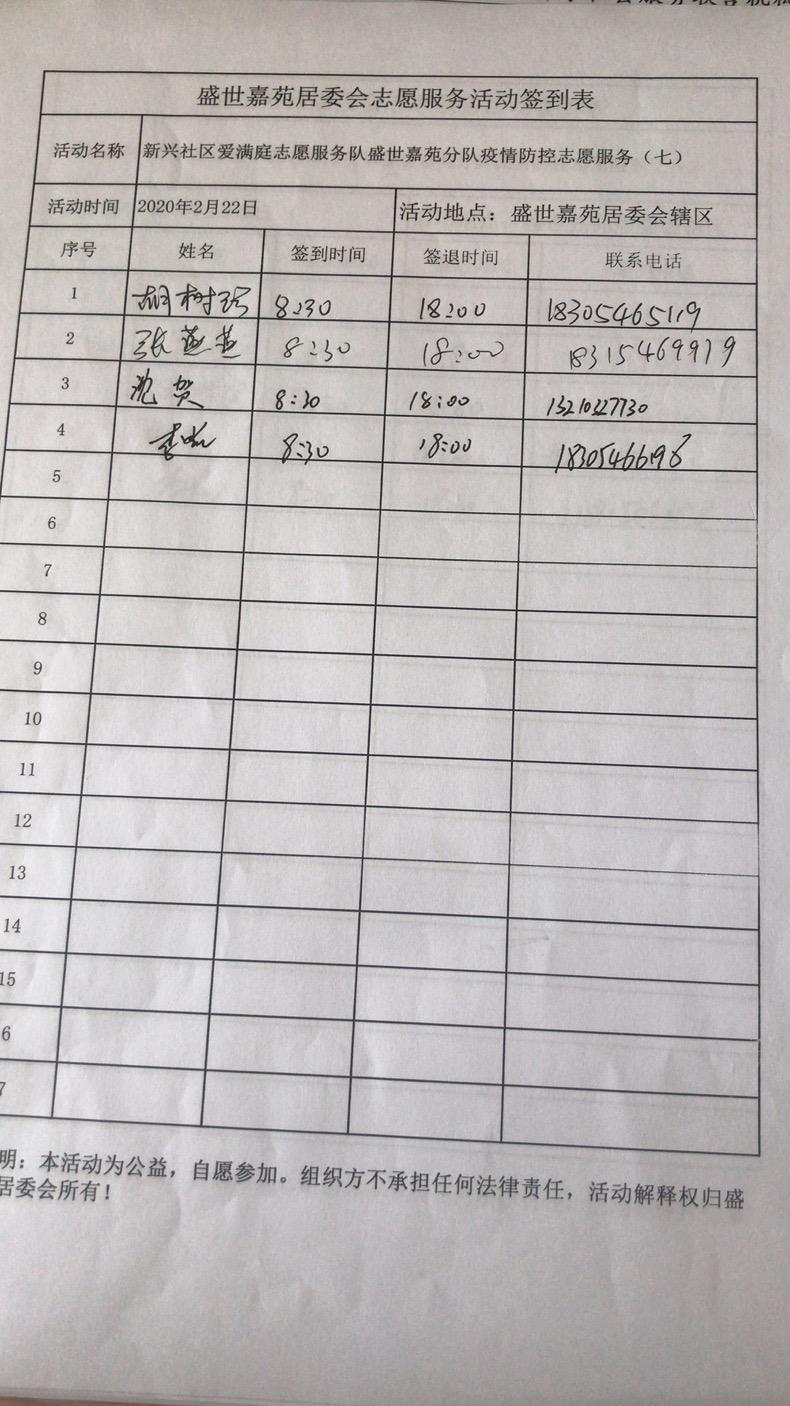 盛世嘉苑居委会志愿服务活动签到表
活动名称 新兴社区爱满庭志愿服务队盛世嘉苑分队疫情防控志愿服务（七）
活动时间 2020年2月22日 活动地点：盛世嘉苑居委会辖区
序号 姓名 签到时间 签退时间 联系电话
1 胡树珍 8:30 18:00 18305465119
2 张燕燕 8:30 18:00 18315469919
3 沈贺 8:30 18:00 13210327730
4 8:30 18:00 18305466196
5
6
7
8
9
10
11
12
13
14
15
6
7
明：本活动为公益，自愿参加。组织方不承担任何法律责任，活动解释权归盛
居委会所有！